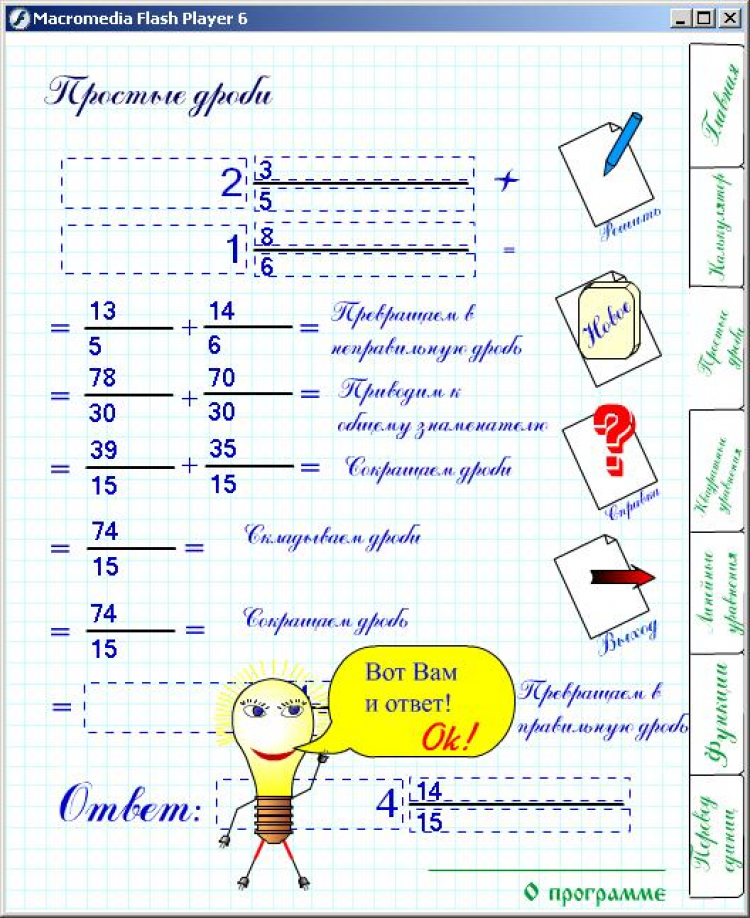 Macromedia Flash Player 6
Простые дроби
2 3/5 +
1 8/6 =
Решить
Новое
Справка
Выход
= 13/5 + 14/6 = Превращаем в
неправильную дробь
= 78/30 + 70/30 = Приводим к
общему знаменателю
= 39/15 + 35/15 = Сокращаем дроби
= 74/15 = Складываем дроби
= 74/15 = Сокращаем дробь
= Превращаем в
правильную дробь
Вот Вам
и ответ!
Ok!
Ответ: 4 14/15
О программе
Главная
Калькулятор
Простые
дроби
Квадратные
уравнения
Линейные
уравнения
Функции
Перевод
единиц